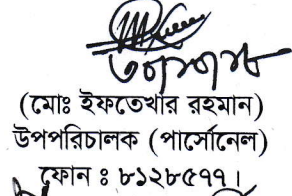 (মোঃ ইফতেখার রহমান)
উপপরিচালক (পার্সোনেল)
ফোন : ৮১২৮৫৭৭।